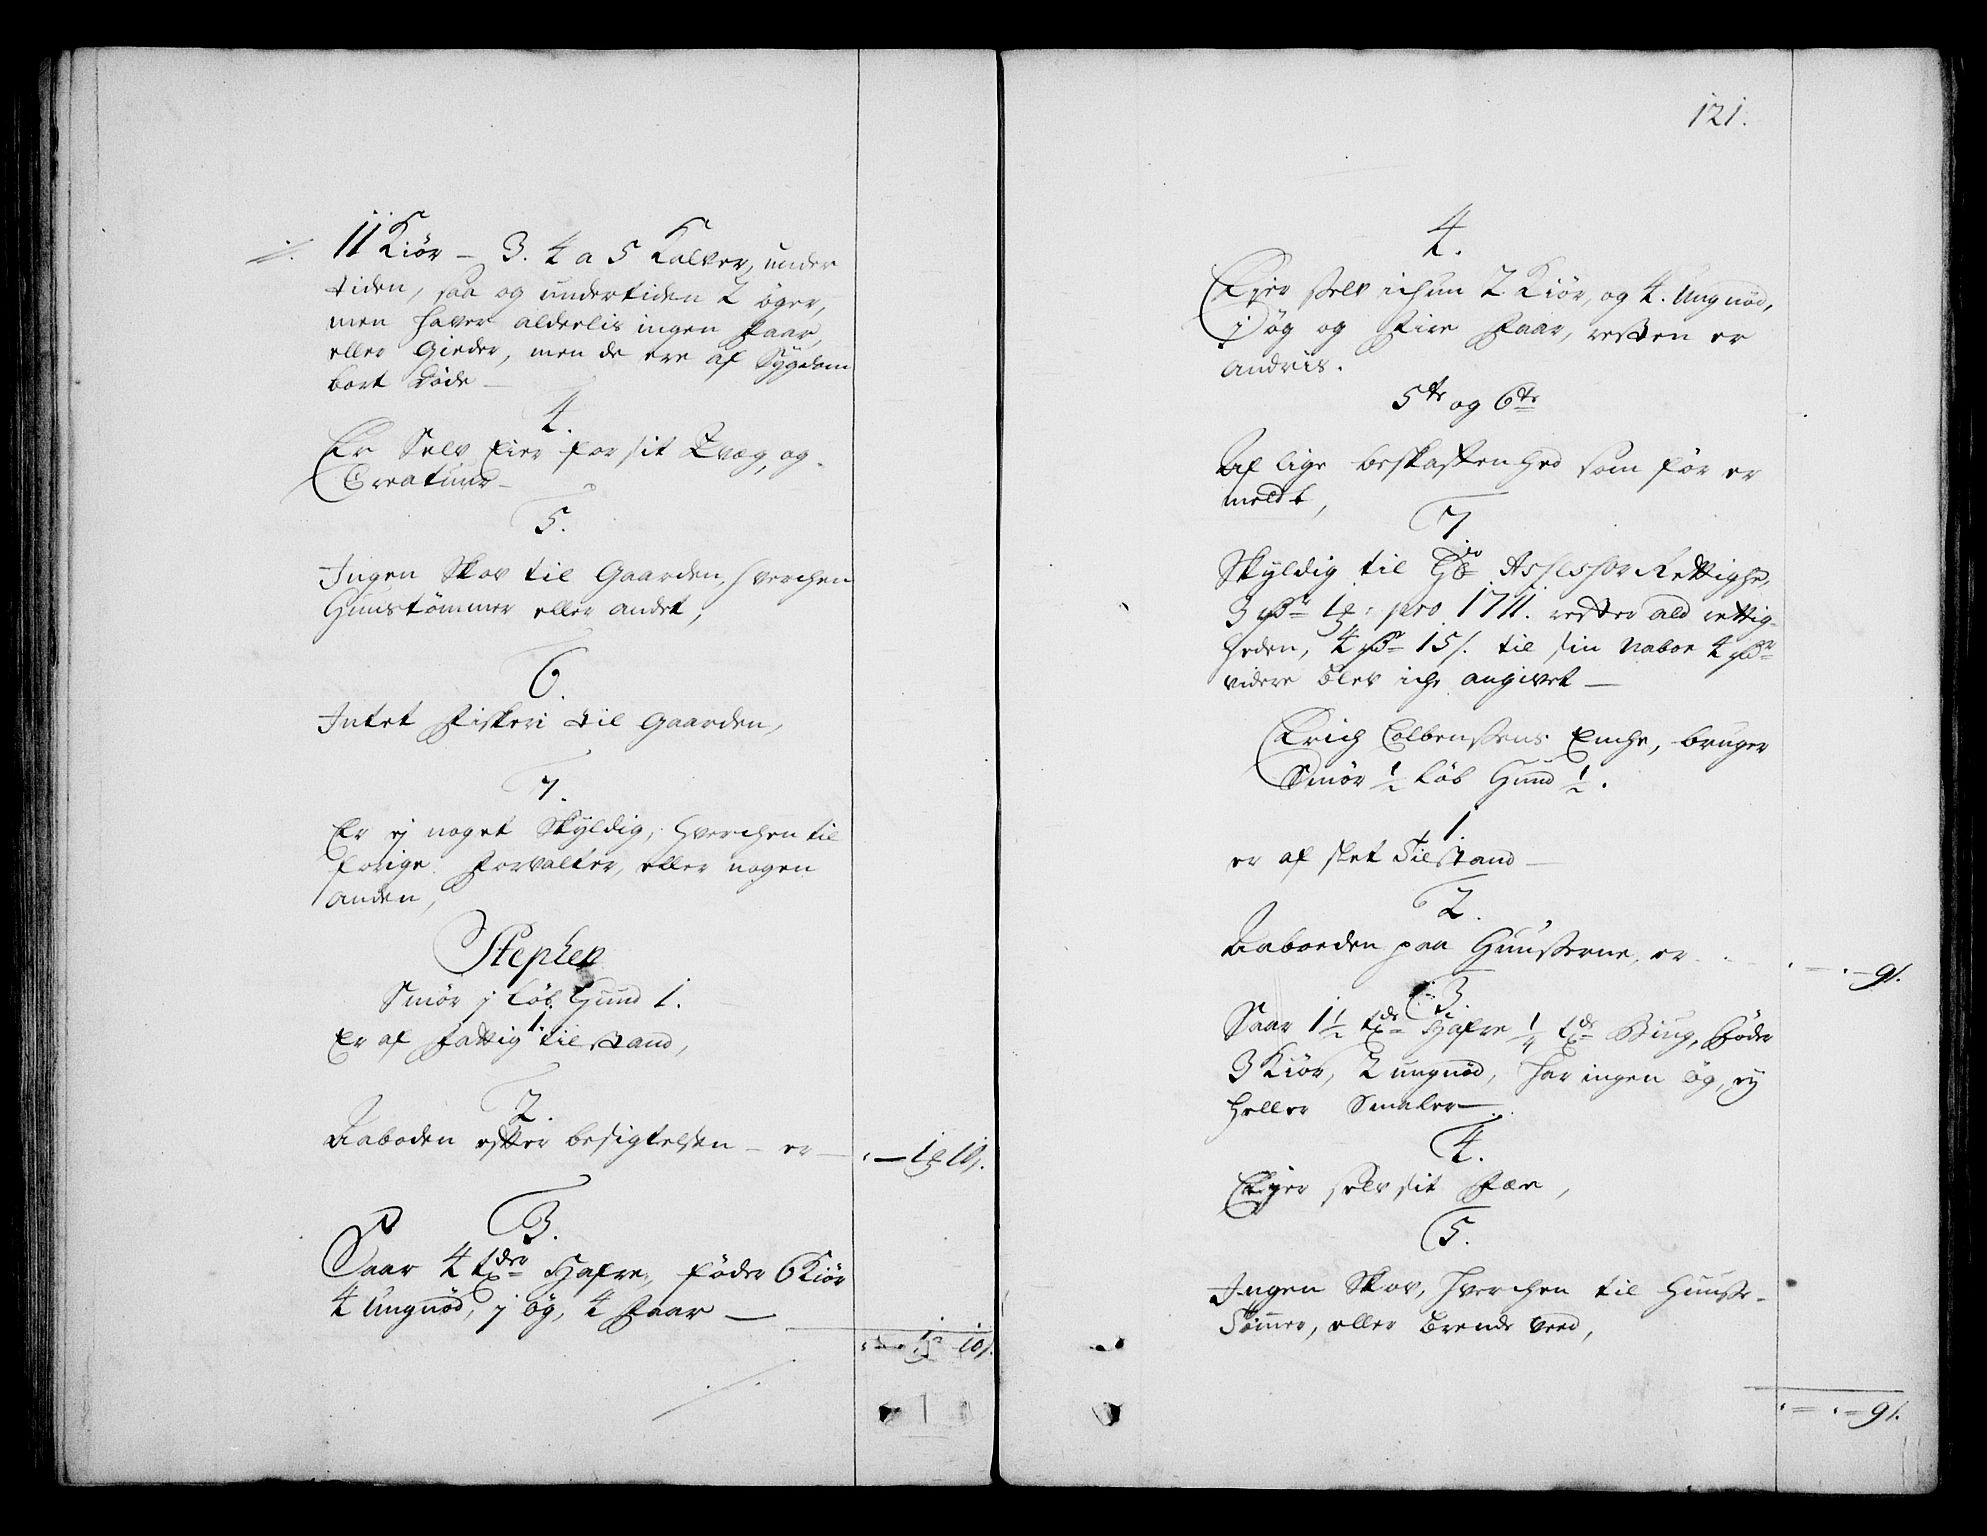 11 Kiør – 3. 4 a 5 Kalver, under
tiden, saa og undertiden 2 øger,
men haver alderlis ingen Faar,
eller Gieder, men de ere af Sygdom
bort døde –
4.
Er Selv Eier for sit Qvæg, og
Creatuur –
5.
Ingen Skov til Gaarden, hverchen
Huustømmer eller andet,
6.
Intet Fiskeri til Gaarden,
7.
Er ej noget Skyldig, hverchen til
forige Forvalter, eller nogen
anden,
Stephen
Smør j Løb Huud 1.
1.
Er af Fattig tilstand,
2.
Aaboden efter besigtelsen – er –
3.
Saar 4 tder Hafre, føder 6 Kiør
4 Ungnød, j øg, 4 Faar –
121.
4.
Ejer selv ichun 2 Kiør, og 4. Ungnød,
j øg og Fire Faar, resten er
andris.
5te og 6te
Af lige beskaffenhed som før er
meldt,
7.
Skyldig til Assessor Rettighed
3 1 pro 1711. rester ald rettig-
heden, 4 15 s. til sin Naboe 4
videre blev iche angivet –
Erich Colbensens Enche, bruger
Smør ½ Løb Huud ½.
1.
er af slet Tilstand –
2.
Aaboeden paa Huusserne, er
– 9 s.
3.
Saar 1½ tde Hafre ¼ tde Biug, føder
3 Kiør, 2 ungnød, har ingen øg, ej
heller Smaler –
4.
Ejer selv sit Fæe,
5.
Ingen Skov, hverchen til Huusse-
Tømer, eller Brende veed,
– 9 s.